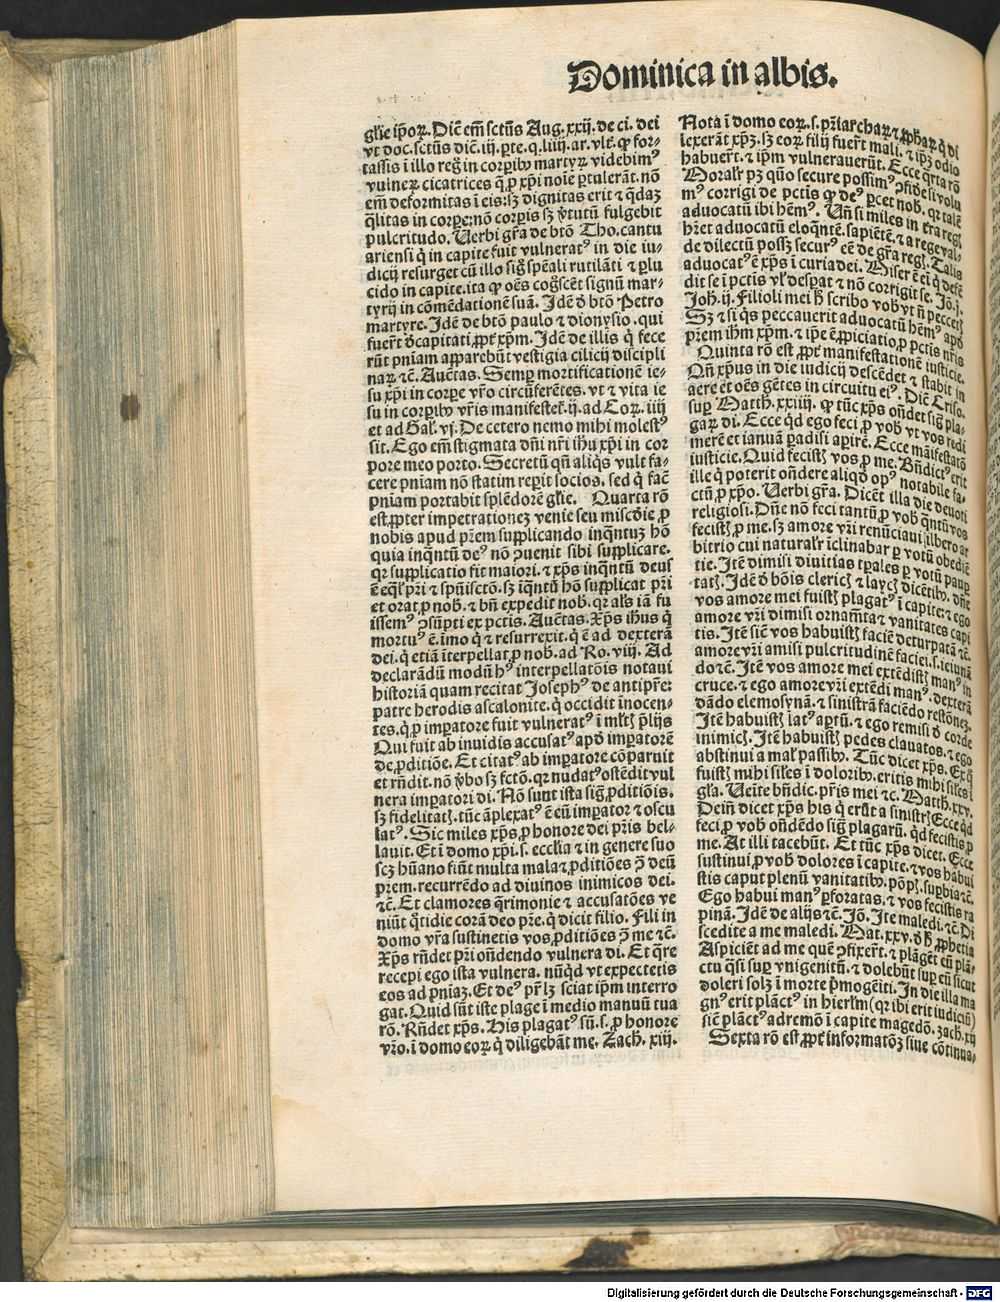 Dominica in albis.
gl̃ie ip̃oꝝ. Dic̃ em̃ sctũs Aug. xxij. de ci. dei
vt doc. sctũs dic̃. iij. p̃te. q. liiij. ar. vlt̃. ꝙ for-
tassis ĩ illo reg̃ in corꝑibꝰ martyꝝ videbimꝰ
vulneꝝ cicatrices q̃ ꝓ xp̃i noĩe ꝑtulerãt. nõ
em̃ deformitas ĩ eis: sꝫ dignitas erit ⁊ q̃daꝫ
q̃litas in corꝑe: nõ corꝑis sꝫ ṽtutũ fulgebit
pulcritudo. Uerbi gr̃a de btõ Tho. cantu
ariensi q̃ in capite fuit vulneratꝰ in die iu-
dicij resurget cũ illo sig̃ spẽali rutilãti ⁊ ꝑlu
cido in capite. ita ꝙ oẽs cog̃scẽt signũ mar-
tyrij in cõmẽdationẽ suã. Idẽ ð btõ Petro
martyre. Idẽ de btõ paulo ⁊ dionysio. qui
fuer̃t ðcapitati ꝓpt̃ xp̃m. Idẽ de illis q̃ fece
rũt pniam apparebũt vestigia cilicij discipli
naꝝ ⁊c̃. Auc̃tas. Semꝑ mortificationẽ ie-
su xp̃i in corꝑe vr̃o circũferẽtes. vt ⁊ vita ie
su in corꝑibꝰ vr̃is manifestet̃. ij. ad Coꝝ. iiij
et ad Gal̃. vj. De cetero nemo mihi molestꝰ
sit. Ego em̃ stigmata dñi nr̃i ihũ xp̃i in cor
pore meo porto. Secretũ qñ aliq̃s vult fa-
cere pniam nõ statim reꝑit socios. sed q̃ fac̃
pniam portabit splẽdorẽ gl̃ie. Quarta rõ
est ꝓpter impetrationeꝫ venie seu mis̃cdie ꝓ
nobis apud pr̃em supplicando inq̃ntuꝫ hõ
quia inq̃ntũ deꝰ nõ ↄuenit sibi supplicare.
qꝛ supplicatio fit maiori. ⁊ xp̃s inq̃ntũ deus
ẽ eq̃l̃ pr̃i ⁊ spũisctõ. sꝫ iq̃ntũ hõ supplicat pr̃i
et orat ꝓ nob̃. ⁊ bñ expedit nob̃. qꝛ al̃s iã fu
issemꝰ ↄsũpti ex pctis. Auc̃tas. Xp̃s ihus q̃
mortuꝰ ẽ. imo q̃ ⁊ resurrexit. q̃ ẽ ad dexterã
dei. q̃ etiã ĩterpellat ꝓ nob̃. ad Ro. viij. Ad
declarãdũ modũ hꝰ interpellatõis notaui
historiã quam recitat Josephꝰ de antipr̃e:
patre herodis ascalonite. q̃ occidit inocen-
tes. q̃ ꝓ imꝑatore fuit vulneratꝰ ĩ ml̃tꝭ p̃lijs
Qui fuit ab inuidis accusatꝰ apð imꝑatorẽ
de ꝓditiõe. Et citatꝰ ab imꝑatore cõparuit
et rñdit. nõ ṽbo sꝫ fctõ. qꝛ nudatꝰ oñdit vul
nera imꝑatori di. Nõ sunt ista sig̃ ꝓditiõis.
sꝫ fidelitatꝭ. tũc ãplexatꝰ ẽ eũ imꝑator ⁊ oscu
latꝰ. Sic miles xp̃s ꝓ honore dei pr̃is bel-
lauit. Et ĩ domo xp̃i. s. ecclĩa ⁊ in genere suo
scꝫ hũano fiũt multa mala ⁊ ꝓditiões ↄ̃ deũ
pr̃em. recurrẽdo ad diuinos inimicos dei.
⁊c̃. Et clamores q̃rimonie ⁊ accusatões ve
niũt q̃tidie corã deo pr̃e. q̃ dicit filio. Fili in
domo vr̃a sustinetis vos ꝓditiões ↄ̃ me ⁊c̃.
Xp̃s rñdet pr̃i oñdendo vulnera di. Et q̃re
recepi ego ista vulnera. nũqd vt expectetis
eos ad pniaꝫ. Et deꝰ pr̃ lꝫ sciat ip̃m interro
gat. Quid sũt iste plage ĩ medio manuũ tua
rõ. Rñdet xp̃s. His plagatꝰ sũ. s. ꝓ honore
vr̃o. ĩ domo eoꝝ q̃ diligebãt me. Zach. xiij.
Nota ĩ domo eoꝝ. s. pr̃iarchaꝝ ⁊ ꝓphaꝝ q̃ di
lexerãt xp̃ꝫ. sꝫ eoꝝ filij fuer̃t mali. ⁊ ip̃ꝫ odio
habuer̃t. ⁊ ip̃m vulnerauerũt. Ecce q̃rta rõ
Moral̃r pꝫ quõ secure possimꝰ ↄfide si volu
mꝰ corrigi de pctis ꝙ deꝰ ꝑcet nob̃. qꝛ talẽ
aduocatũ ibi hẽmꝰ. Uñ si miles in tr̃a regꝭ
hr̃et aduocatũ eloq̃ntẽ. sapiẽtẽ. ⁊ a rege val-
de dilectũ possꝫ securꝰ eẽ de gr̃a regꝭ. Talis
aduocatꝰ ẽ xp̃s ĩ curia dei. Miser ẽ ei q̃ defẽ
dit se ĩ pctis vl̃ desꝑat ⁊ nõ corrigit se. Jo. j.
Joh̃. ij. Filioli mei h̃ scribo vob̃ vt ñ peccetꝭ
Sꝫ ⁊ si q̃s peccauerit aduocatũ hẽmꝰ apð
pr̃em ihm xp̃m. ⁊ ip̃e ẽ ꝓpiciatio ꝓ pctis nr̃is
Quinta rõ est ꝓpt̃ manifestationẽ iusticie.
Qñ xp̃us in die iudicij descẽdet ⁊ stabit in
aere et oẽs gẽtes in circuitu eiꝰ. Dic̃ Criso.
suꝑ Matth. xxiiij. ꝙ tũc xp̃s oñdet sig̃ pla-
gaꝝ di. Ecce qd ego feci ꝓ vob̃ vt vos redi
merẽ et ianuã ꝑadisi aꝑirẽ. Ecce mãifestatõ
iusticie. Quid fecistꝭ vos ꝓ me. Bñdictꝰ erit
ille q̃ poterit oñdere aliqð opꝰ notabile fa-
ctũ ꝓ xp̃o. Uerbi gr̃a. Dicẽt illa die deuoti
religiosi. Dñe nõ feci tantũ ꝓ vob̃ q̃ntũ vos
fecistꝭ ꝓ me. sꝫ amore vr̃i renũciaui libero ar
bitrio cui natural̃r ĩclinabar ꝑ votũ obediẽ
tie. Itẽ dimisi diuitias tꝑales ꝑ votũ pauꝑ
tatꝭ. Idẽ ð bõis clericꝭ ⁊ laycꝭ dicẽtibꝰ. dñe
vos amore mei fuistꝭ plagatꝰ ĩ capite: ⁊ ego
amore vr̃i dimisi ornam̃ta ⁊ vanitates capi
tis. Itẽ sic̃ vos habuistꝭ faciẽ deturpatã ⁊c̃.
amore vr̃i amisi pulcritudinẽ faciei. s. ieiunã
do ⁊c̃. Itẽ vos amore mei extẽdistꝭ manꝰ in
cruce. ⁊ ego amore vr̃i extẽdi manꝰ. dexterã
dãdo elemosynã. ⁊ sinistrã faciẽdo restõneꝫ.
Itẽ habuistꝭ latꝰ aꝑtũ. ⁊ ego remisi ð corde
inimicꝭ. Itẽ habuistꝭ pedes clauatos. ⁊ ego
abstinui a mal̃ passibꝰ. Tũc dicet xp̃s. Ex q̃
fuistꝭ mihi sil̃es ĩ doloribꝰ. eritis mihi sil̃es ĩ
gl̃a. Ueite bñdic. pr̃is mei ⁊c. Matth. xxv.
Deiñ dicet xp̃s his q̃ erũt a sinistrꝭ Ecce qd
feci ꝓ vob̃ oñdẽdo sig̃ plagarũ. qd fecistis ꝓ
me. At illi tacebũt. Et tũc xp̃s dicet. Ecce
sustinui ꝓ vob̃ dolores ĩ capite. ⁊ vos habui
stis caput plenũ vanitatibꝰ. põpꝭ. suꝑbia ⁊c̃.
Ego habui manꝰ ꝑforatas. ⁊ vos fecistis ra
pinã. Idẽ de alijs ⁊c̃. Jõ. Ite maledi. ⁊c̃. Di
scedite a me maledi. Mat. xxv. ð h̃ ꝓphetia
Aspiciẽt ad me quẽ ↄfixer̃t. ⁊ plãgẽt eũ plã-
ctu q̃si suꝑ vnigenitũ. ⁊ dolebũt suꝑ eũ sicut
doleri solꝫ ĩ morte p̃mogẽiti. In die illa ma
gnꝰ erit plãctꝰ in hierl̃m (qꝛ ibi erit iudiciũ)
sic̃ plãctꝰ adremõ ĩ capite magedõ. zach. xij
Sexta rõ est ꝓpt̃ informatõꝫ siue cõtinua-
Digitalisierung gefördert durch die Deutsche Forschungsgemeinschaft - DFG